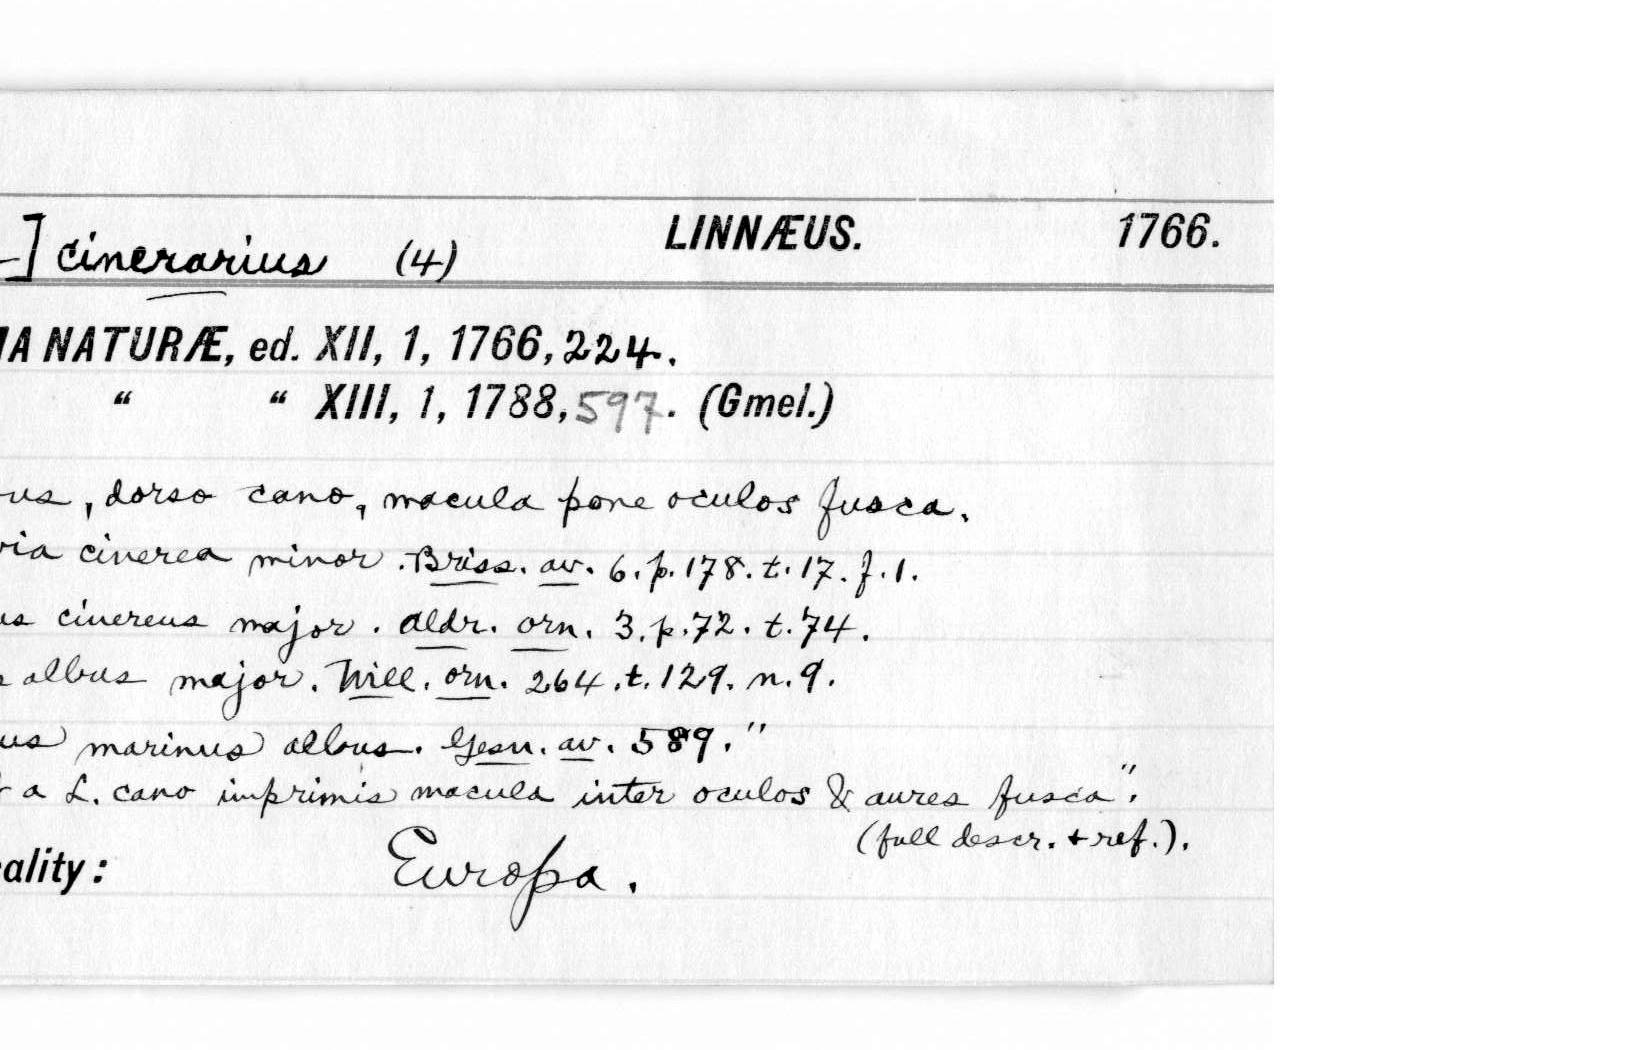 ] cinerarius (4) LINNÆUS. 1766.
NATURÆ, ed. XII, 1, 1766, 224.
“ “ XIII, 1, 1788, 597. (Gmel.)
, dorso cano, macula pone oculos fusca.
cinerea minor. Briss. av. 6. p. 178. t. 17. f. 1.
cinereus major. Aldr. orn. 3. p. 72. t. 74.
albus major. Will. orn. 264. t. 129. n. 9.
marinus albus. Gesn. av. 589."
a L. cano imprimis macula inter oculos & aures fusca".
(full descr. + ref.).
ality: Europa.